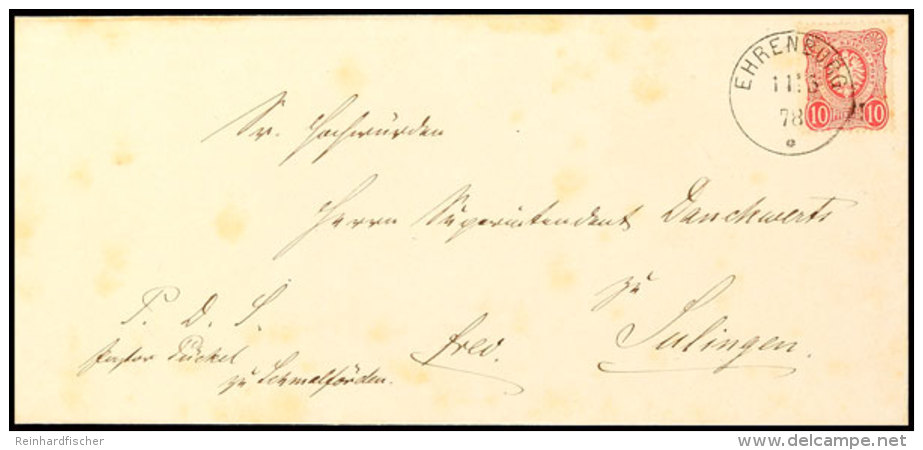 EHRENBURG
11 6
78
10 10
Sr. Hochwürden
Herrn Superintendent Danckwerts
zu
P. D. S.
Sulingen.
Pastor
frco.
zu Schmalförden.
Reinhardfischer
delcampe.net